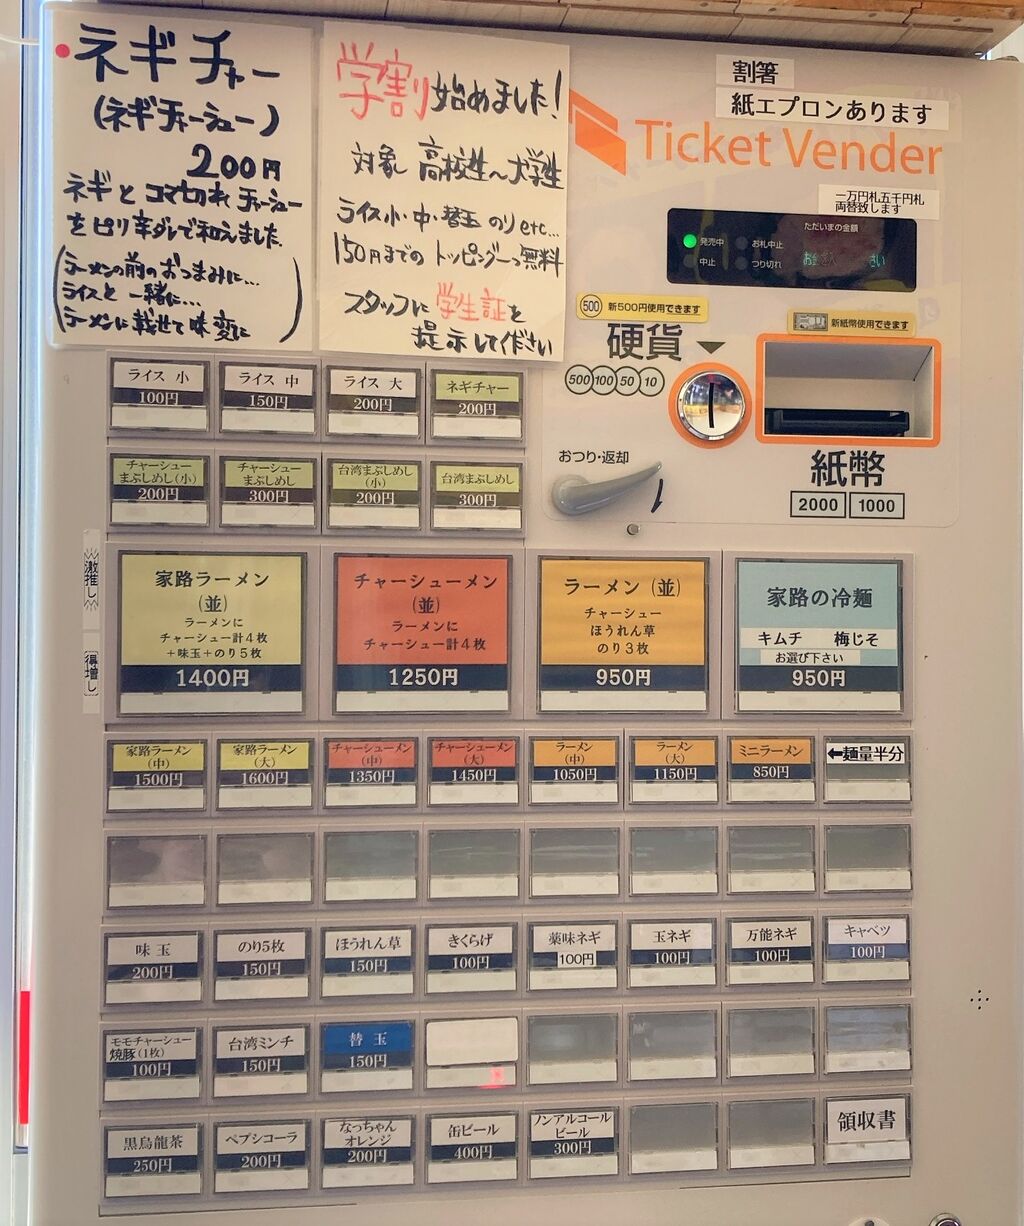 ネギチャー
(ネギチャーシュー)
200円
ネギとコマ切れチャーシュー
をピリ辛ダレで和えました。
(ラーメンの前のおつまみに…
ライスと一緒に…
ラーメンに載せて味変に)
学割始めました!
対象 高校生〜大学生
ライス小・中・替玉 のりetc…
150円までのトッピング一つ無料
スタッフに学生証を
提示してください
割箸
紙エプロンあります
Ticket Vender
一万円札五千円札
両替致します
ただいまの金額
発売中 お札中止
中止 つり切れ
500 新500円使用できます
新紙幣使用できます
硬貨
500 100 50 10
おつり・返却
紙幣
2000 1000
ライス 小
100円
ライス 中
150円
ライス 大
200円
ネギチャー
200円
チャーシュー
まぶしめし(小)
200円
チャーシュー
まぶしめし
300円
台湾まぶしめし
(小)
200円
台湾まぶしめし
300円
激推し
得増し
家路ラーメン
(並)
ラーメンに
チャーシュー計4枚
+味玉+のり5枚
1400円
チャーシューメン
(並)
ラーメンに
チャーシュー計4枚
1250円
ラーメン(並)
チャーシュー
ほうれん草
のり3枚
950円
家路の冷麺
キムチ 梅じそ
お選び下さい
950円
家路ラーメン
(中)
1500円
家路ラーメン
(大)
1600円
チャーシューメン
(中)
1350円
チャーシューメン
(大)
1450円
ラーメン
(中)
1050円
ラーメン
(大)
1150円
ミニラーメン
850円
←麺量半分
味玉
200円
のり5枚
150円
ほうれん草
150円
きくらげ
100円
薬味ネギ
100円
玉ネギ
100円
万能ネギ
100円
キャベツ
100円
モモチャーシュー
焼豚(1枚)
100円
台湾ミンチ
150円
替玉
150円
黒烏龍茶
250円
ペプシコーラ
200円
なっちゃん
オレンジ
200円
缶ビール
400円
ノンアルコール
ビール
300円
領収書